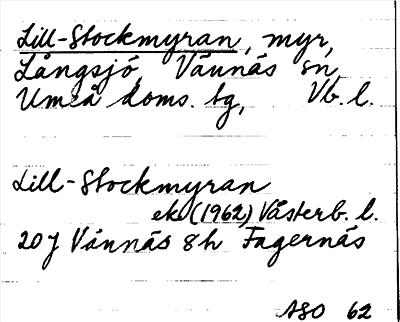 Lill-Stockmyran, myr,
Långsjö, Vännäs sn,
Umeå doms. bg, Vb. l.
Lill-Stockmyran
ek. (1962) Västerb. l.
20J Vännäs 8h Fagernäs
ASO 62